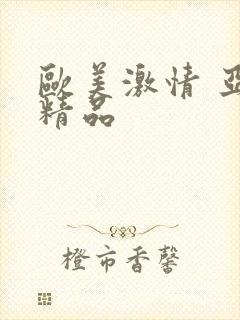 歐美激情 亞
精品
橙市香馨